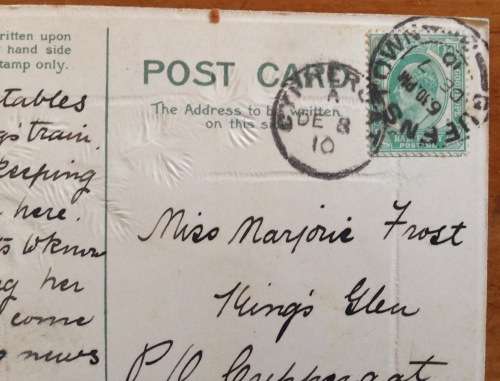 ritten upon
hand side
tamp only.
tables
train.
eeping
here.
to know
g her
come
news
POST CARD
The Address to be written
on this
A
DE 8
10
QUEENSTOWN
6.30 PM
HALF
POSTAGE
Miss Marjorie Frost
King's Glen
P.O.